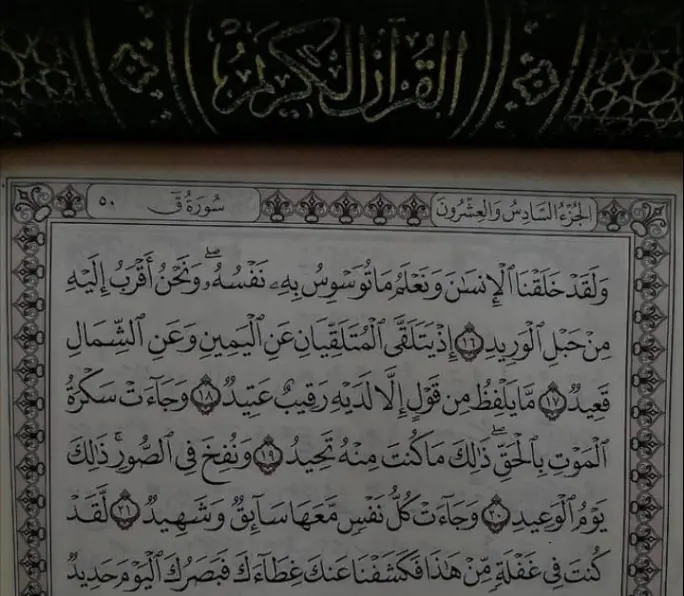 القرآن الكريم
الجزء السادس والعشرون سورة ق ٥٠
وَلَقَدْ خَلَقْنَا ٱلْإِنسَٰنَ وَنَعْلَمُ مَا تُوَسْوِسُ بِهِۦ نَفْسُهُۥ ۖ وَنَحْنُ أَقْرَبُ إِلَيْهِ
مِنْ حَبْلِ ٱلْوَرِيدِ ١٦ إِذْ يَتَلَقَّى ٱلْمُتَلَقِّيَانِ عَنِ ٱلْيَمِينِ وَعَنِ ٱلشِّمَالِ
قَعِيدٌ ١٧ مَّا يَلْفِظُ مِن قَوْلٍ إِلَّا لَدَيْهِ رَقِيبٌ عَتِيدٌ ١٨ وَجَآءَتْ سَكْرَةُ
ٱلْمَوْتِ بِٱلْحَقِّ ۖ ذَٰلِكَ مَا كُنتَ مِنْهُ تَحِيدُ ١٩ وَنُفِخَ فِى ٱلصُّورِ ۚ ذَٰلِكَ
يَوْمُ ٱلْوَعِيدِ ٢٠ وَجَآءَتْ كُلُّ نَفْسٍ مَّعَهَا سَآئِقٌ وَشَهِيدٌ ٢١ لَّقَدْ
كُنتَ فِى غَفْلَةٍ مِّنْ هَٰذَا فَكَشَفْنَا عَنكَ غِطَآءَكَ فَبَصَرُكَ ٱلْيَوْمَ حَدِيدٌ